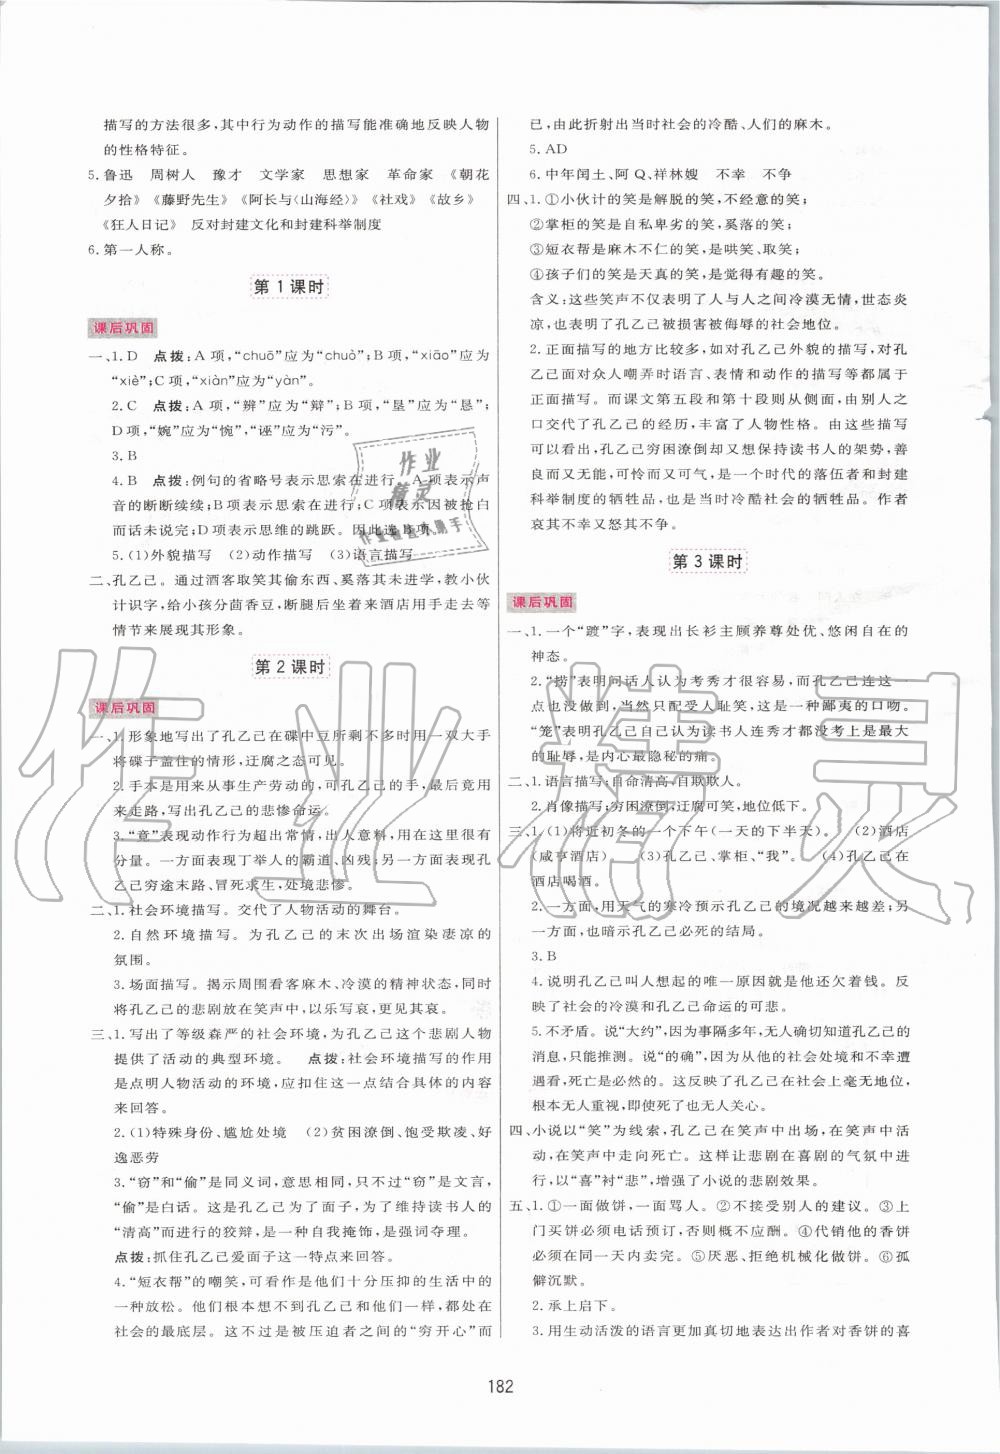 描写的方法很多,其中行为动作的描写能准确地反映人物
的性格特征。
5.鲁迅 周树人 豫才 文学家 思想家 革命家 《朝花
夕拾》《藤野先生》《阿长与〈山海经〉》《社戏》《故乡》
《狂人日记》 反对封建文化和封建科举制度
6.第一人称。
第1课时
课后巩固
一、1.D 点拨:A项,“chuō”应为“chuò”;B项,“xiāo”应为
“xiè”;C项,“xiàn”应为“yàn”。
2.C 点拨:A项,“辨”应为“辩”;B项,“垦”应为“恳”;
D项,“婉”应为“惋”,“诬”应为“污”。
3.B
4.B 点拨:例句的省略号表示思索在进行;A项表示声
音的断断续续;B项表示思索在进行;C项表示被打断
而话未说完;D项表示思维的跳跃。因此选B项。
5.(1)外貌描写 (2)动作描写 (3)语言描写
二、孔乙己。通过酒客取笑其偷东西、奚落其未进学,教小伙
计识字,给小孩分茴香豆,断腿后坐着来酒店用手走去等
情节来展现其形象。
第2课时
课后巩固
一、1.形象地写出了孔乙己在碟中豆所剩不多时用一双大手
将碟子盖住的情形,迂腐之态可见。
2.手本是用来从事生产劳动的,可孔乙己的手,竟是用
来走路,写出孔乙己的悲惨命运。
3.“竟”表现动作行为超出常情,出人意料,用在这里很有
分量。一方面表现丁举人的霸道、凶残;另一方面表现孔
乙己穷途末路、冒死求生,处境悲惨。
二、1.社会环境描写。交代了人物活动的舞台。
2.自然环境描写。为孔乙己的末次出场渲染凄凉的
氛围。
3.场面描写。揭示周围看客麻木、冷漠的精神状态,同时
将孔乙己的悲剧放在笑声中,以乐写哀,更见其哀。
三、1.写出了等级森严的社会环境,为孔乙己这个悲剧人物
提供了活动的典型环境。 点拨:社会环境描写的作用
是点明人物活动的环境,应扣住这一点结合具体的内容
来回答。
2.(1)特殊身份、尴尬处境 (2)贫困潦倒、饱受欺凌、好
逸恶劳
3.“窃”和“偷”是同义词,意思相同,只不过“窃”是文言,
“偷”是白话。这是孔乙己为了面子,为了维持读书人的
“清高”而进行的狡辩,是一种自我掩饰,是强词夺理。
点拨:抓住孔乙己爱面子这一特点来回答。
4.“短衣帮”的嘲笑,可看作是他们十分压抑的生活中的
一种放松。他们根本想不到孔乙己和他们一样,都处在
社会的最底层。这不过是被压迫者之间的“穷开心”而
已,由此折射出当时社会的冷酷、人们的麻木。
5.AD
6.中年闰土、阿Q、祥林嫂 不幸 不争
四、1.①小伙计的笑是解脱的笑,不经意的笑;
②掌柜的笑是自私卑劣的笑,奚落的笑;
③短衣帮是麻木不仁的笑,是哄笑、取笑;
④孩子们的笑是天真的笑,是觉得有趣的笑。
含义:这些笑声不仅表明了人与人之间冷漠无情,世态炎
凉,也表明了孔乙己被损害被侮辱的社会地位。
2.正面描写的地方比较多,如对孔乙己外貌的描写,孔
乙己面对众人嘲弄时语言、表情和动作的描写等都属于
正面描写。而课文第五段和第十段则从侧面,由别人之
口交代了孔乙己的经历,丰富了人物性格。由这些描写
可以看出,孔乙己穷困潦倒却又想保持读书人的架势,善
良而又无能,可怜而又可气,是一个时代的落伍者和封建
科举制度的牺牲品,也是当时冷酷社会的牺牲品。作者
哀其不幸又怒其不争。
第3课时
课后巩固
一、1.一个“踱”字,表现出长衫主顾养尊处优、悠闲自在的
神态。
2.“捞”表明问话人认为考秀才很容易,而孔乙己连这一
点也没做到,当然只配受人耻笑,这是一种鄙夷的口吻。
“笼”表明孔乙己自己认为读书人连秀才都没考上是最大
的耻辱,是内心最隐秘的痛。
二、1.语言描写;自命清高,自欺欺人。
2.肖像描写;穷困潦倒,迂腐可笑,地位低下。
三、1.(1)将近初冬的一个下午(一天的下半天)。 (2)酒店
(咸亨酒店) (3)孔乙己、掌柜、“我”。 (4)孔乙己在
酒店喝酒。
2.一方面,用天气的寒冷预示孔乙己的境况越来越差;另
一方面,也暗示孔乙己必死的结局。
3.B
4.说明孔乙己叫人想起的唯一原因就是他还欠着钱。反
映了社会的冷漠和孔乙己命运的可悲。
5.不矛盾。说“大约”,因为事隔多年,无人确切知道孔乙己的
消息,只能推测。说“的确”,因为从他的社会处境和不幸遭
遇看,死亡是必然的。这反映了孔乙己在社会上毫无地位,
根本无人重视,即使死了也无人关心。
四、小说以“笑”为线索,孔乙己在笑声中出场,在笑声中活
动,在笑声中走向死亡。这样让悲剧在喜剧的气氛中进
行,以“喜”衬“悲”,增强了小说的悲剧效果。
五、1.①一面做饼,一面骂人。②不接受别人的建议。③上
门买饼必须电话预订,否则概不应酬。④代销他的香饼
必须在一天内卖完。⑤厌恶、拒绝机械化做饼。⑥孤
僻沉默。
2.承上启下。
3.用生动活泼的语言更加真切地表达出作者对香饼的喜
182
作业精灵
作业
精灵